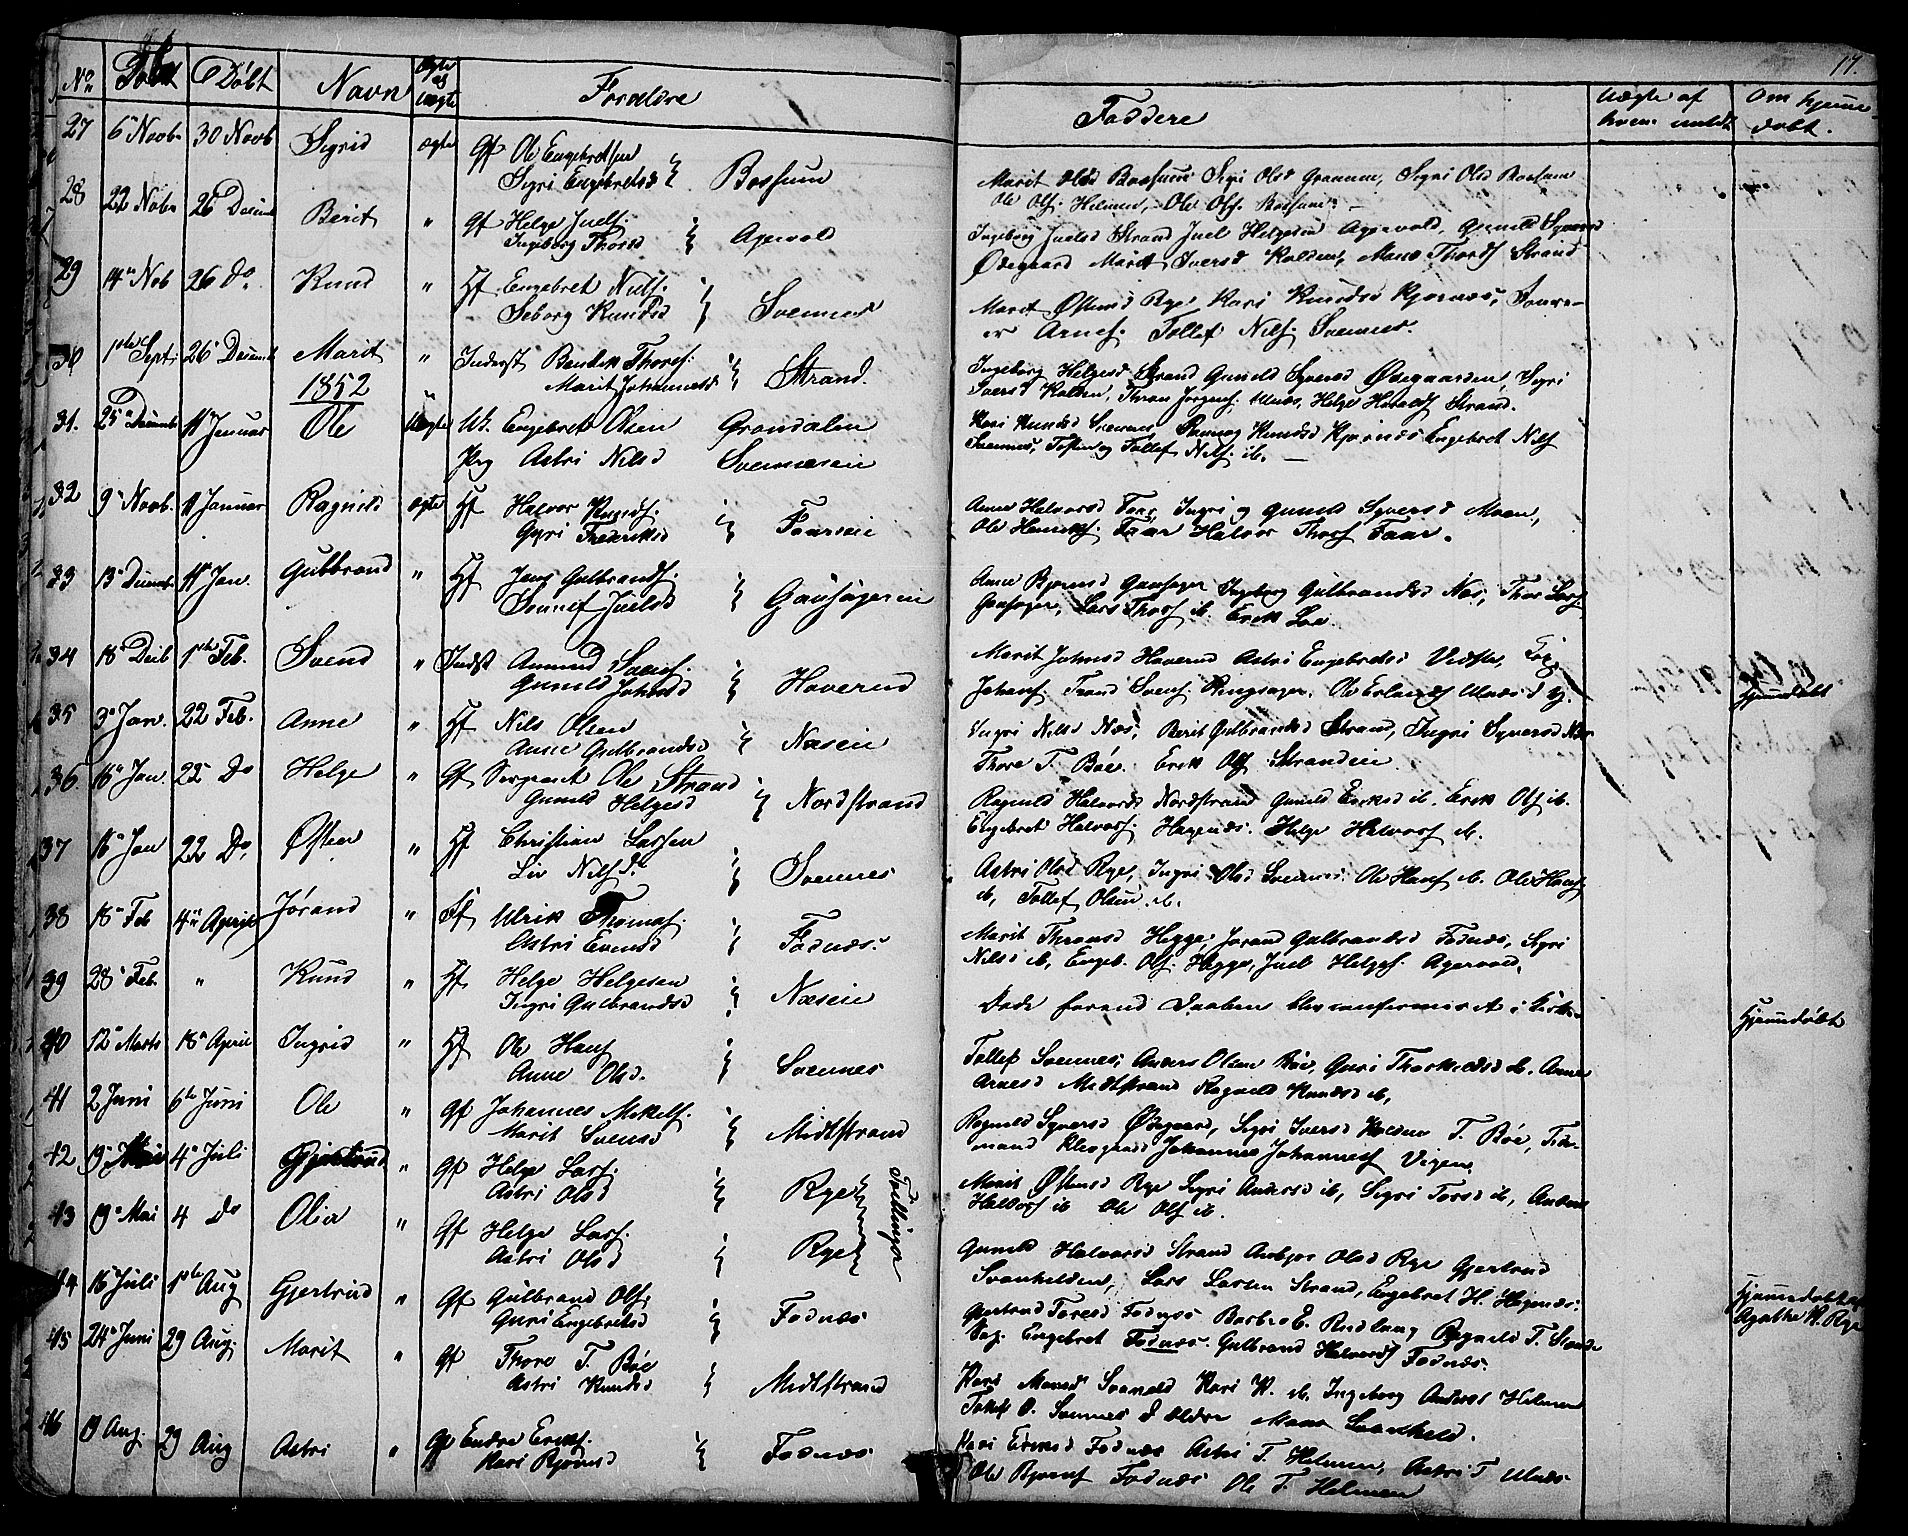 17.
No Født Døbt Navn Ægte el Uægte Forældre Faddere Uægte af hvem meldt Om hjemmedøbt.
27 6 Novb 30 Novb Sigrid ægte Gf Ole Engebretsen
Sigri Engebretsd Bossum
Marit Olsd Bossum Sigri Olsd Sigri Olsd Bossum
Ole Olss. Helmen, Ole Olss. Bossum.
28 22 Nobr 26 Decemb Berit " Gf Helge Juelss.
Ingeborg Thorsd Agervold
Ingeborg Juelsd Strand Juel Helgesen Agervold, Gunild Syversd
Ødegaard Marit Iversd Kolden, Mons Thordss Strand
29 14 Nob 26 Do Knud " Hf Engebret Nilss.
Seborg Knudsd Svennes
Marit Østensd Rye Kari Knudsd Kjernæs,
Arness. Tollef Nilss. Svennes.
30 1ste Septr 26 Decemb Marit " Inderst Bendik Thoress.
Marit Johannesd Strand.
Ingeborg Helgesd Strand Gunild Syversd Ødegaarden, Sigri
Iversd Kolden, Thron Jørgens. Ulnes, Helge Haraldss Strand.
1852
31. 25 Decemb 11 Januar Ole Uægte Uk. Engebret Olsen Grøndalen
Pig Astri Nilsd Svenneseie
Kari Knudsd Svennes Knudsd Kjernæs Engebret Nilss
Svennes, Tosten og Tollef Nilss. ib.
32 9 Novb. 11 Januar Ragnild ægte Hf Halvor Knudss.
Guri Frederiksd Faarseie
Anne Halvorsd Faar Ingri og Gunild Syversd Moen,
Ole Henrikss. Faar Halvor Thorss Faar.
33 13 Decemb 11 Jan. Gulbrand " Hf Jens Gulbrandss.
Juelsd Gausagereie
Anne Bjørnsd Gausager Ingeborg Gulbrandsd Næs, Thor Larss
Gausager, Lars Thorss ib. Erik Loe.
34 18 Decb 1ste Feb. Svend " Indst Amund Svenss.
Gunild Johnsd Haverud
Marit Johnsd Haverud Astri Engebretsd Vidste,
Johanss. Trond Svenss. Ringsager, Ole Erlandss Ulnæs
Hjemdøbt
35 3 Jan. 22 Feb. Anne " Hf Nils Olsen
Anne Gulbrandsd Næseie
Ingri Nilsd Næs, Berit Gulbrandsd Strand, Ingri Syversd Næs
Thore T. Bøe. Erik Olss Strandeie
36 16 Jan. 22 Do Helge " Gf Sergeant Ole Strand
Gunild Helgesd Nordstrand
Ragnild Halvorsd Nordstrand Gunild Eriksd ib. Erik Olss ib.
Engebret Halvorss. Hagenæs. Helge Halvorss ib.
37 16 Jan 22 Do Østen " Hf Christian Larsen
Liv Nilsd. Svennes
Astri Olsd Rye, Ingri Olsd Svennes. Ole Hanss ib. Ole Hanss
ib, Tollef Olsen ib.
38 18 Feb 4 Aprile Jørand " Sf Ulrik Thomass.
Astri Evensd Fodnæs.
Marit Thronsd Hegge, Jørand Gulbrandsd Fodnæs, Sigri
Nilsd ib, Engeb. Olss. Hegge, Juel Helgess. Agervold.
39 28 Feb. " Knud " Hf Helge Helgesen
Ingri Gulbrandsd Næseie
Døde forend Daaben blev confirmeret i Kirken
Hjemdøbt
40 12 Marts 18 April Ingrid " Hf Ole Hanss
Anne Olsd. Svennes
Tollef Svennes, Anders Olsen Bøe, Guri Thorkildsd ib. Anne
Arnesd Midtstrand Ragnild Knudsd ib,
41 2 Juni 6te Juni Ole " Gf Johannes Mikelss.
Marit Svensd Midtstrand
Ragnild Syversd Ødegaard, Sigri Iversd Kolden T. Bøe, Tide-
mand Johannes Johanness Vigen.
42 19 Mai 4 Juli Gjertrud " Gf Helge Larss.
Astri Olsd Rye
Marit Østensd Rye Sigri Andersd ib, Sigri Torsd ib, Anders
Halvorss ib Ole Olss ib.
Tvillinger
43 19 Mai 4 Do Olia " Gf Helge Larss.
Astri Olsd Rye
Gunild Halvorsd Strand Anbjør Olsd Rye Gjertrud
Svanhilden, Lars Larsen Strand, Engebret H. Hagenæs.
44 16 Juli 1ste Aug Gjertrud " Gf Gulbrand Olss.
Guri Engebretsd Fodnæs
Gjertrud Toresd Fodnæs Barbro E. Rudlang Ragnild T. Strande
Engebret Fodnæs. Gulbrand Halvorss Fodnæs.
Hjemmedøbt af
Agathe K. Rye
45 24 Juni 29 Aug. Marit " Gf Thore T. Bøe
Astri Knudsd Midtstrand
Kari Monsd Svanhild Kari K. ib. Ingeborg Andersd Helmen
Tollef O. Svennes d ældre, Mons Svanhild.
46 19 Aug. 29 Aug Astri " Gf Endre Erikss.
Kari Bjørnsd Fodnæs
Kari Eriksd Fodnæs Astri T. Helmen, Astri T Ulnæs
Ole Bjørnss Fodnæs Ole T. Helmen